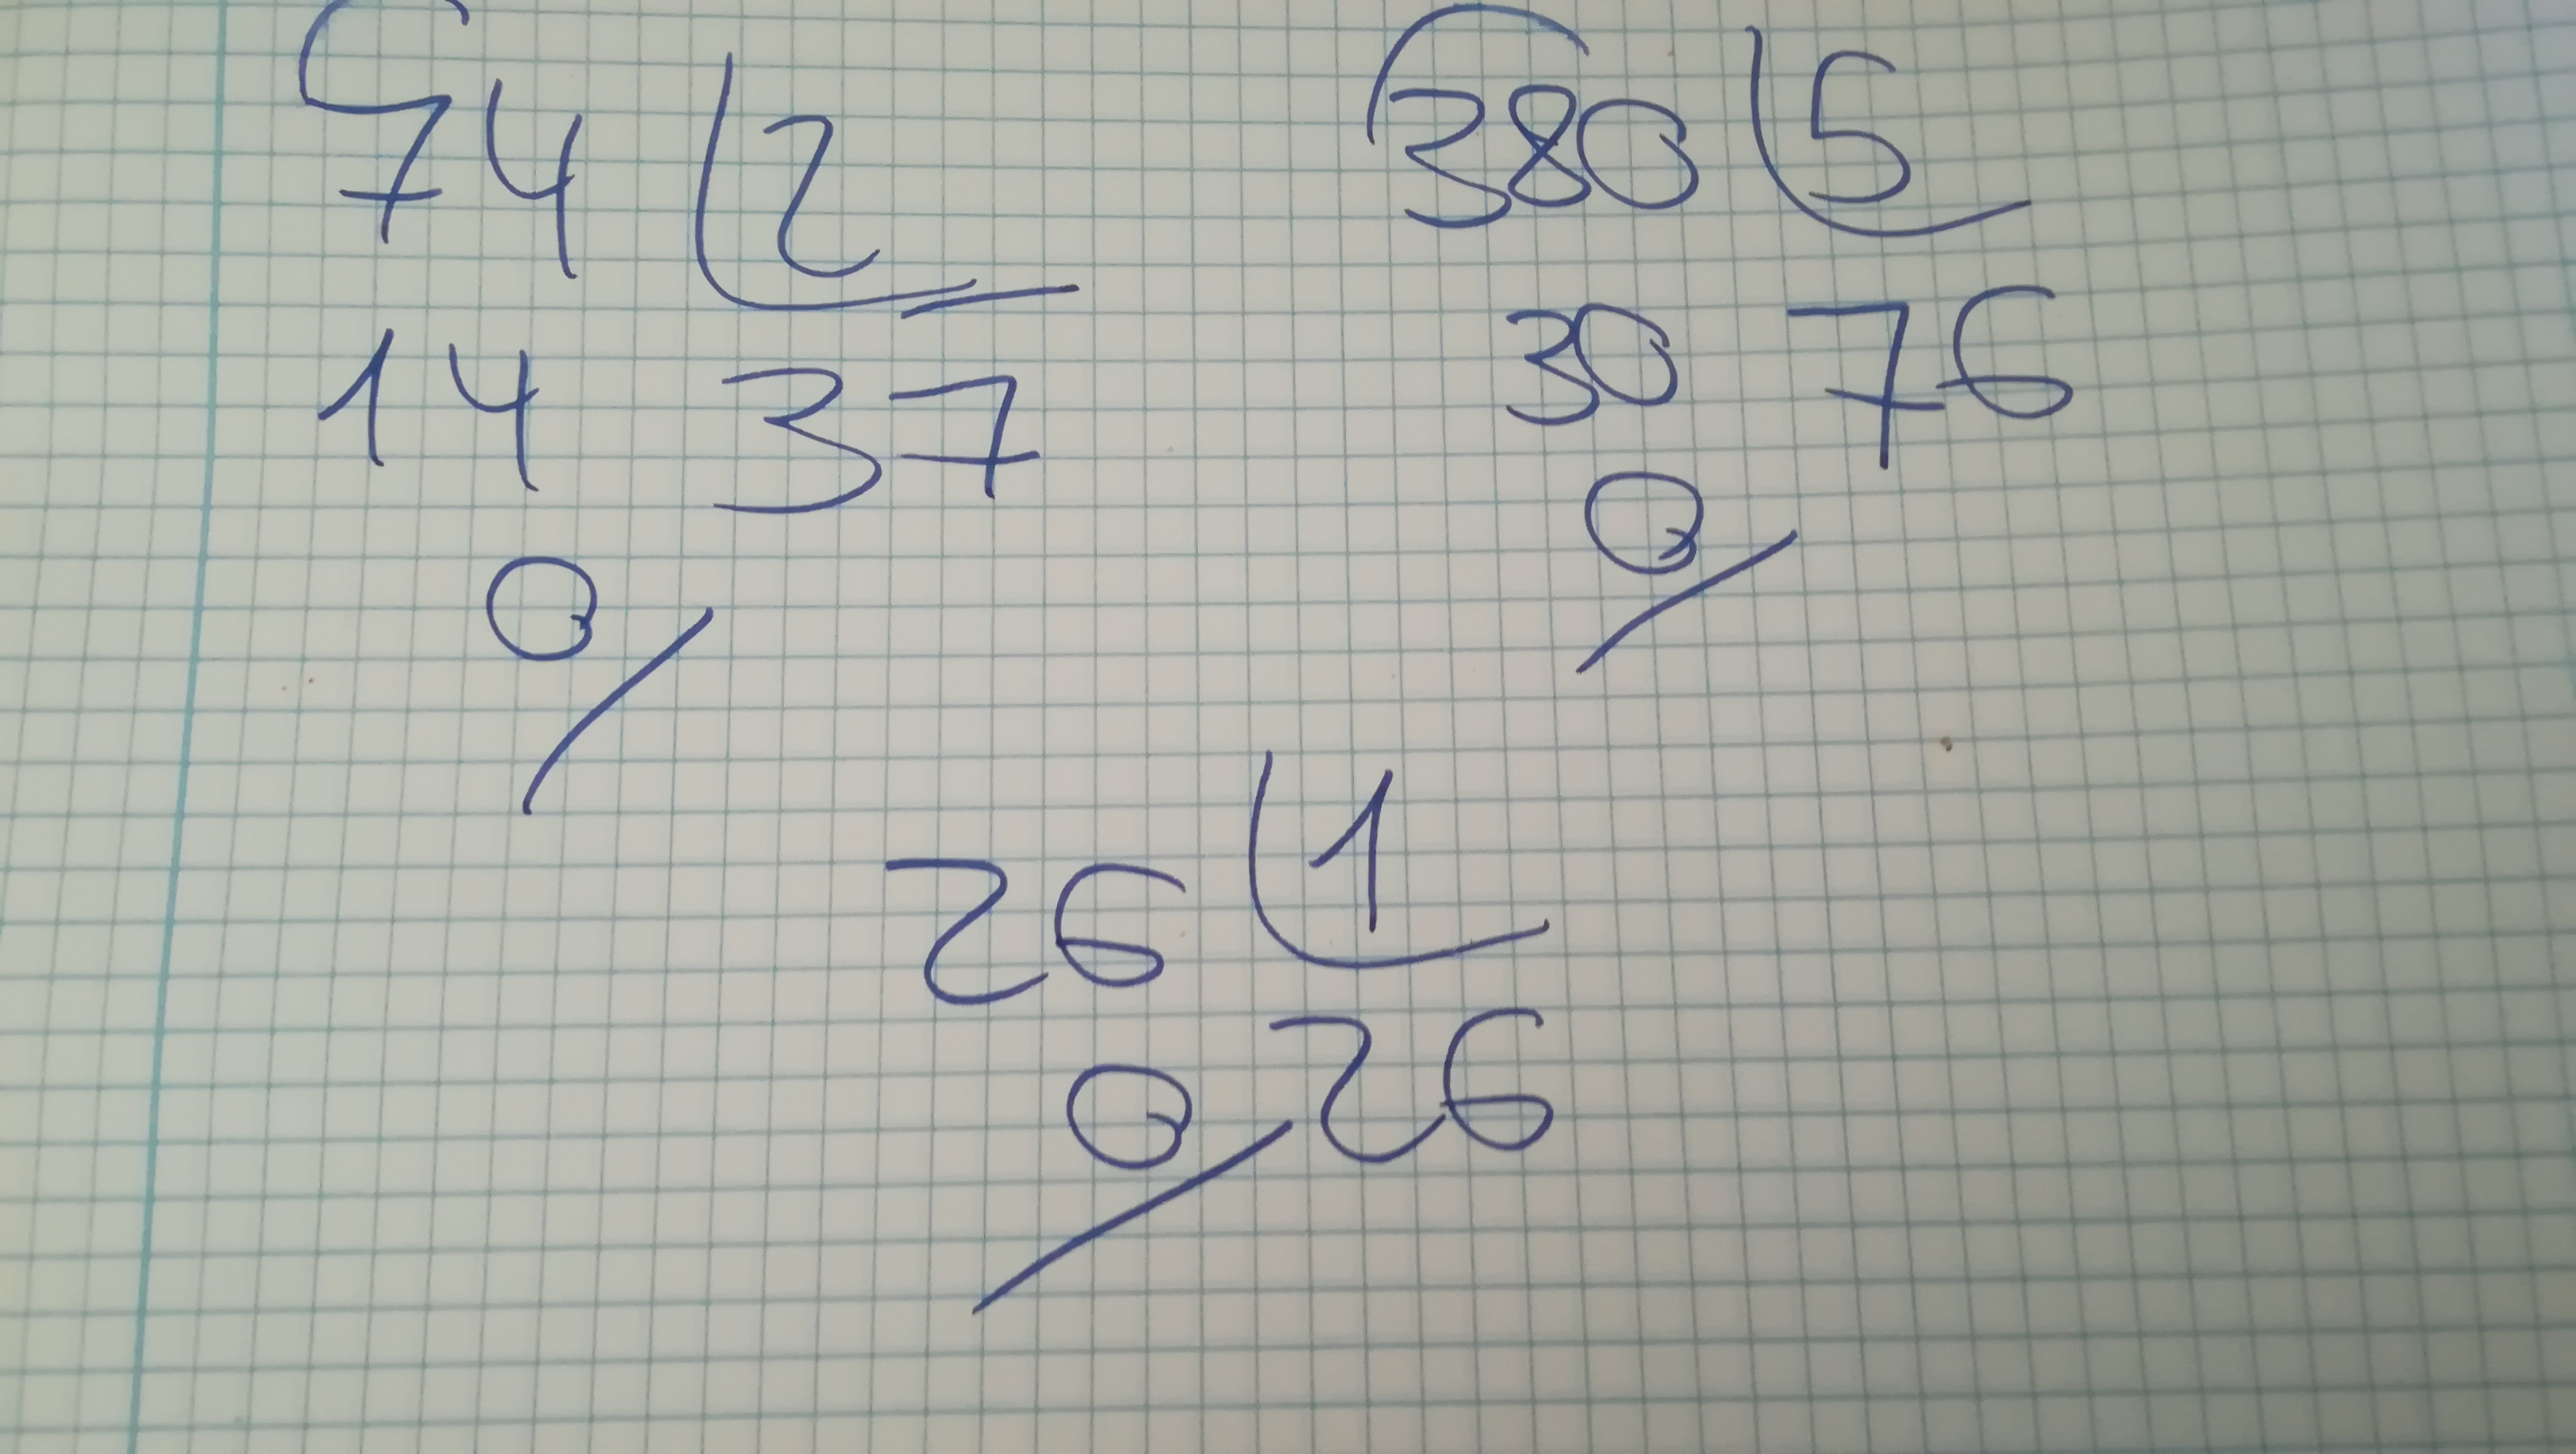 74 2
14 37
0
380 5
30 76
0
26 1
0 26